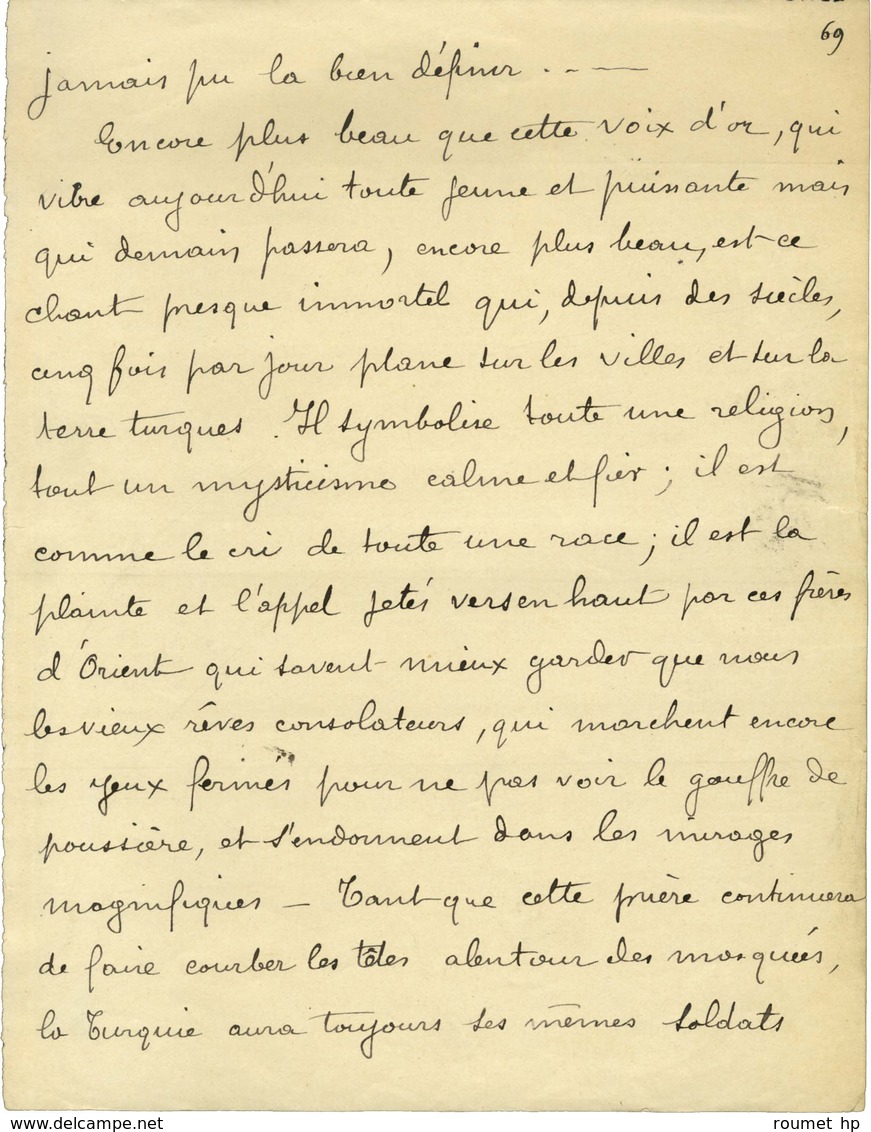 69
jamais pu la bien définir . . —
Encore plus beau que cette voix d'or, qui
vibre aujourd'hui toute jeune et puissante mais
qui demain passera, encore plus beau, est ce
chant presque immortel qui, depuis des siècles,
cinq fois par jour plane sur les villes et sur la
terre turques. Il symbolise toute une religion,
tout un mysticisme calme et fier ; il est
comme le cri de toute une race ; il est la
plainte et l'appel jetés vers en haut par ces frères
d'Orient qui savent mieux garder que nous
les vieux rêves consolateurs, qui marchent encore
les yeux fermés pour ne pas voir le gouffre de
poussière, et s'endorment dans les mirages
magnifiques — Tant que cette prière continuera
de faire courber les têtes alentour des mosquées,
la Turquie aura toujours ses mêmes soldats
roumet hp